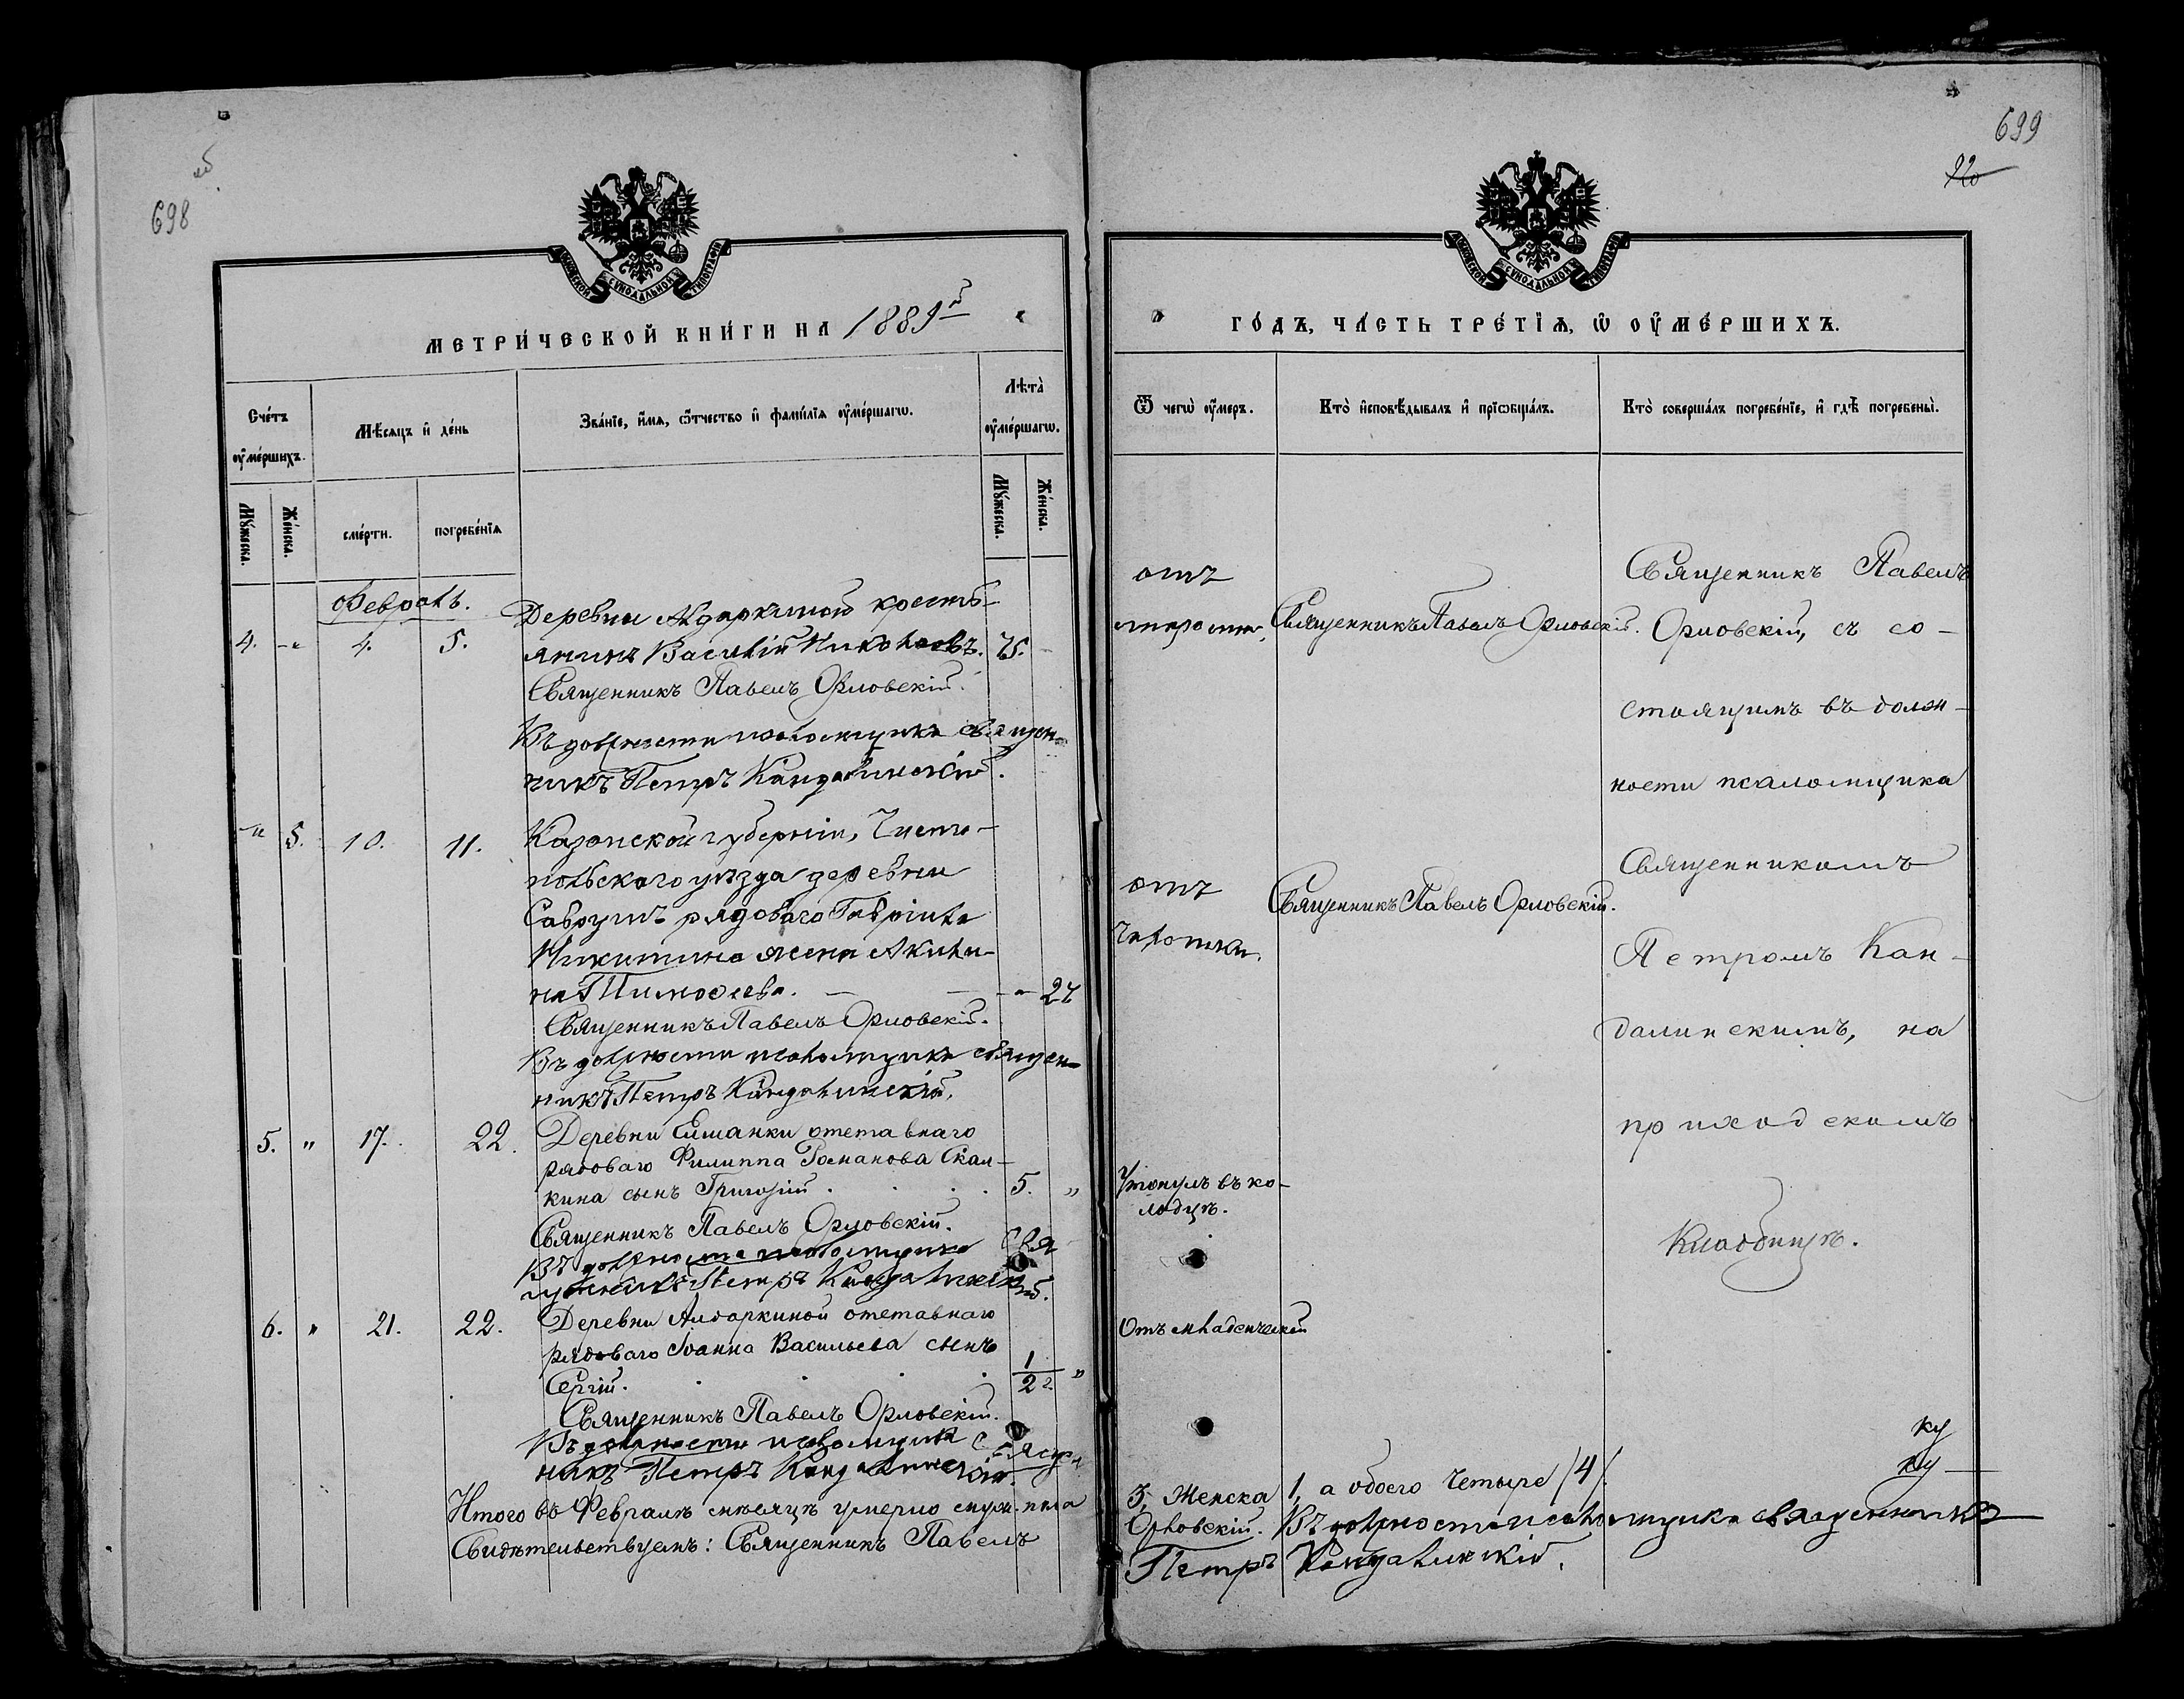 698
МЕТРИ́ЧЕСКОЙ КНИ́ГИ НА 1889й
Сче́тъ оу҆ме́ршихъ.
Мѣ́сяцъ и҆ де́нь
Зва́нїе, и҆́мя, ѻ҆́тчество и҆ фами́лїя оу҆ме́ршагѡ.
Лѣта̀ оу҆ме́ршагѡ.
Му́жеска.
Же́нска.
сме́рти.
погребе́нїя
Му́жеска.
Же́нска.
Февраль.
Деревни Алдаркиной кресть-
4. -„ 4. 5. янинъ Василій Николаевъ. 75.
Священникъ Павелъ Орловскій.
Въ должности псаломщика священ-
никъ Петръ Кандалинскій.
„ 5. 10. 11. Казанской губерніи, Чисто-
польскаго уѣзда деревни
рядоваго Гавріила
Никитина жена Акили-
на Тимофеева. - - „ 27
Священникъ Павелъ Орловскій.
Въ должности псаломщика священ-
никъ Петръ Кандалинскій.
5. „ 17. 22. Деревни Елшанки отставнаго
рядоваго Филиппа Романова Скал-
кина сынъ Григорій . . . 5. „
Священникъ Павелъ Орловскій.
Въ должности псаломщика свя
щенникъ Петръ Кандалинскій.
6. „ 21. 22. Деревни Алдаркиной отставнаго
рядоваго Іоанна Васильева сынъ
Сергій. . . . . 1/2 г. „
Священникъ Павелъ Орловскій.
Въ должности псаломщика священ
никъ Петръ Кандалинскій.
Итого въ Февралѣ мѣсяцѣ умерло муж. пола
Свидѣтельствуемъ: Священникъ Павелъ
699
ГО́ДЪ, ЧА́СТЬ ТРЕ́ТЇЯ, Ѡ҆ ОУ҆МЕ́РШИХЪ.
Ѿ чегѡ̀ оу҆́меръ.
Кто̀ и҆сповѣ́дывалъ и҆ прїѡбща́лъ.
Кто̀ соверша́лъ погребе́нїе, и҆ гдѣ̀ погребены̀.
отъ
старости.
Священникъ Павелъ Орловскій.
отъ
чахотки.
Священникъ Павелъ Орловскій.
Утонулъ въ ко-
лодцѣ.
Отъ младенческой
Священникъ Павелъ
Орловскій, съ со-
стоящимъ въ долж-
ности псаломщика
Священникомъ
Петромъ Кан-
далинскимъ, на
приходскомъ
Кладбищѣ.
3, Женска 1, а обоего четыре /4/.
Орловскій. Въ должности псаломщика священникъ
Петръ Кандалинскій.